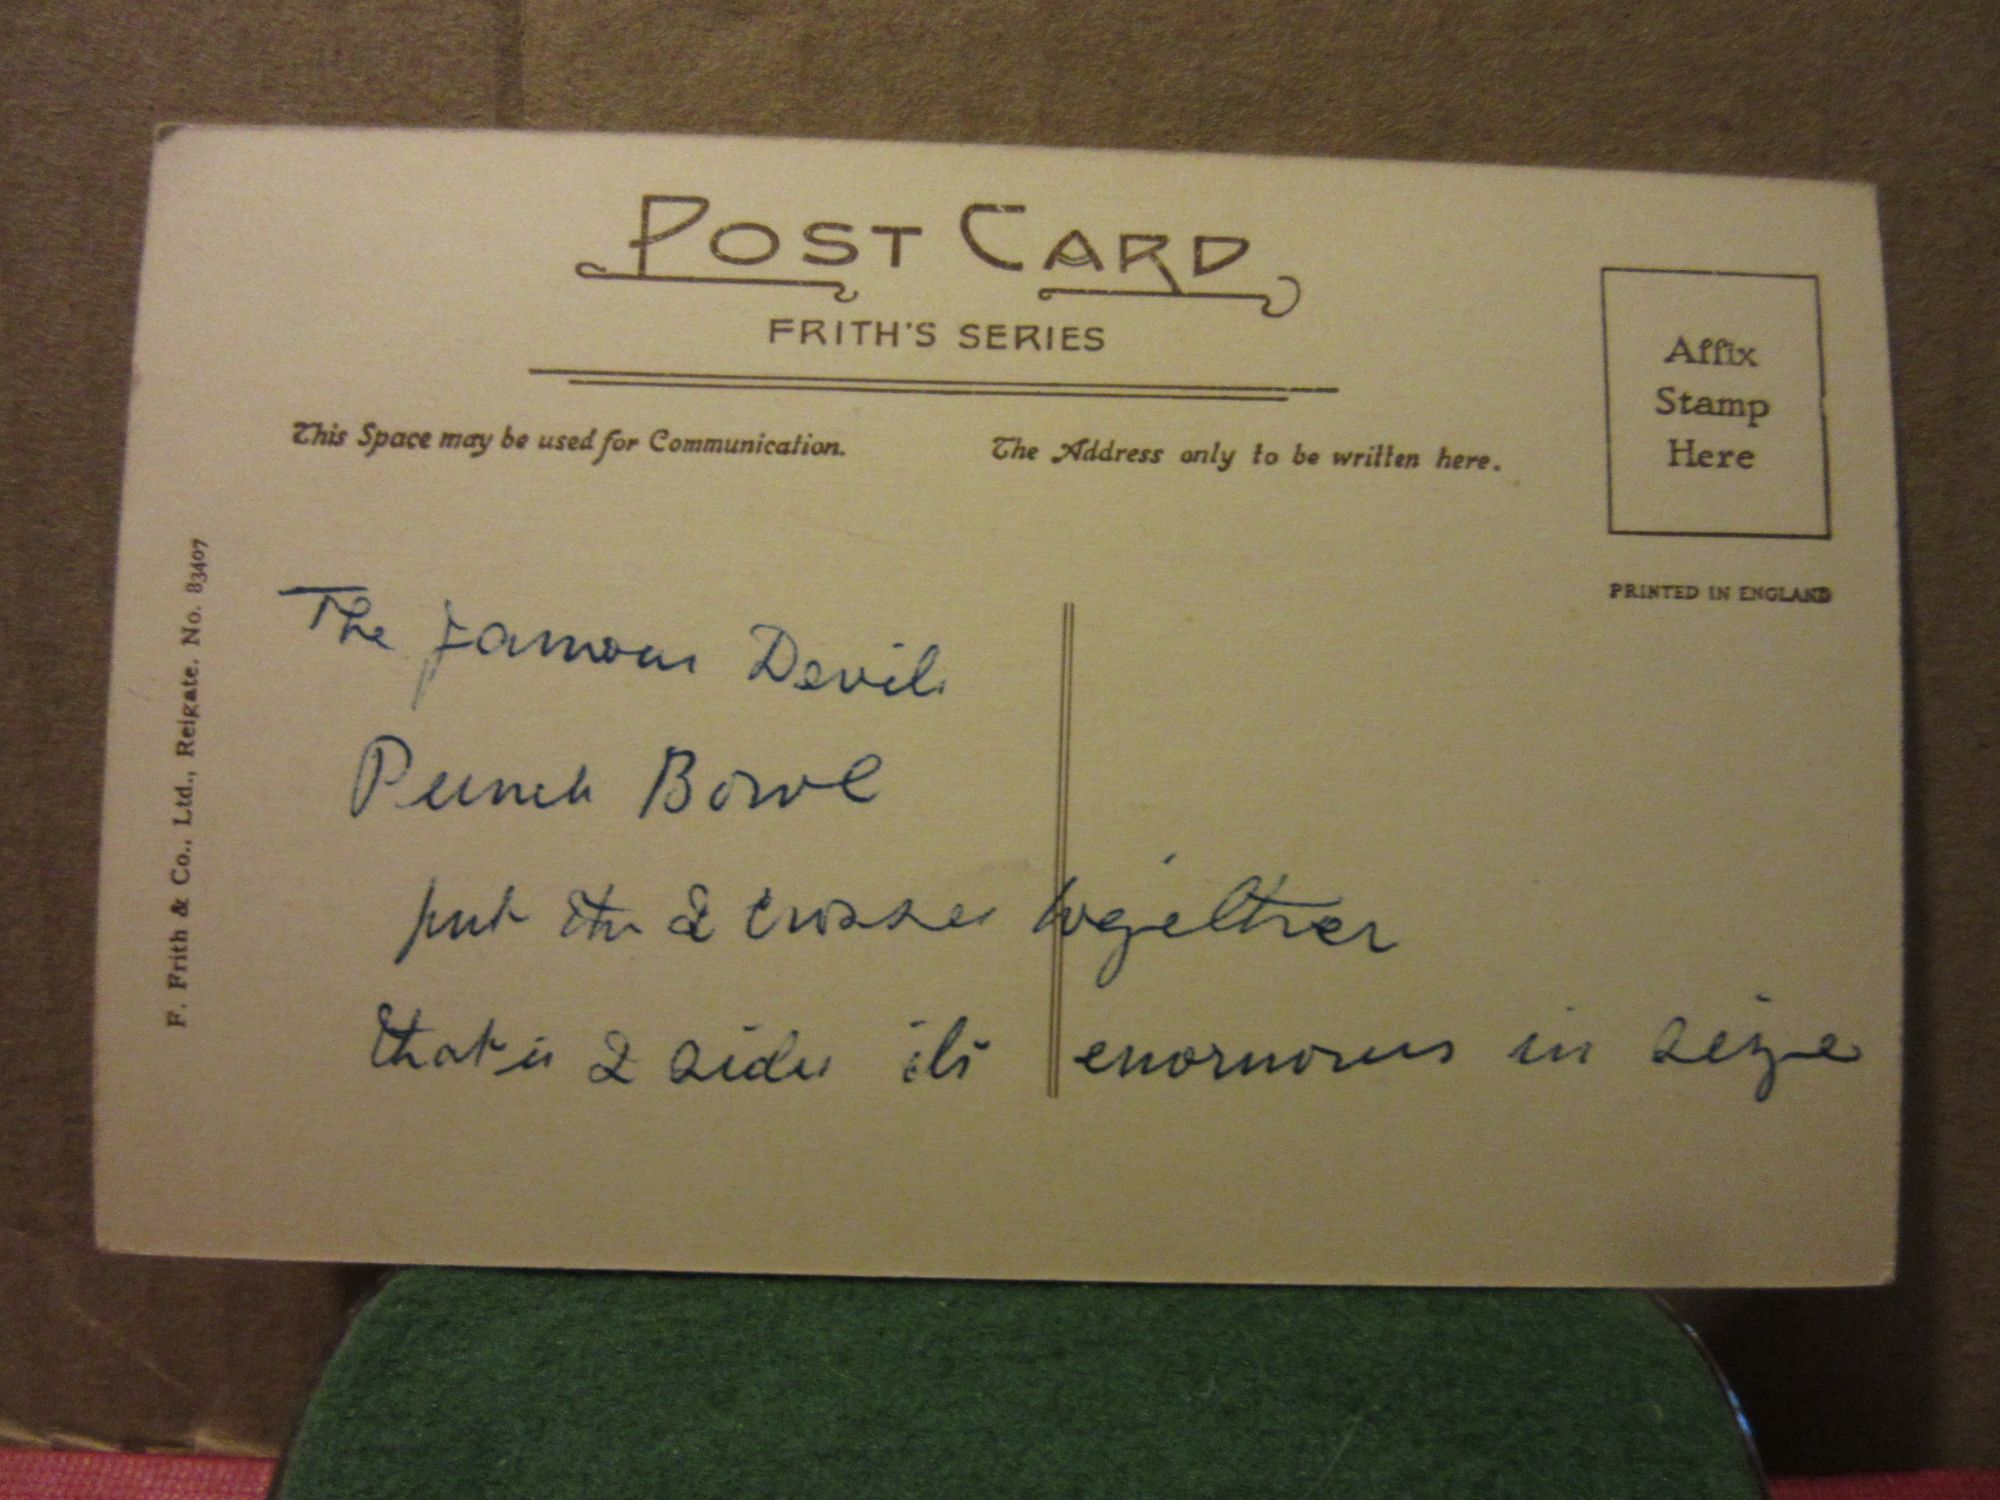 POST CARD
FRITH'S SERIES
This Space may be used for Communication.
The Address only to be written here.
Affix
Stamp
Here
PRINTED IN ENGLAND
F. Frith & Co., Ltd., Reigate. No. 83407
The famous Devils
Punch Bowl
put the 2 crosses together
that is 2 sides its enormous in seize